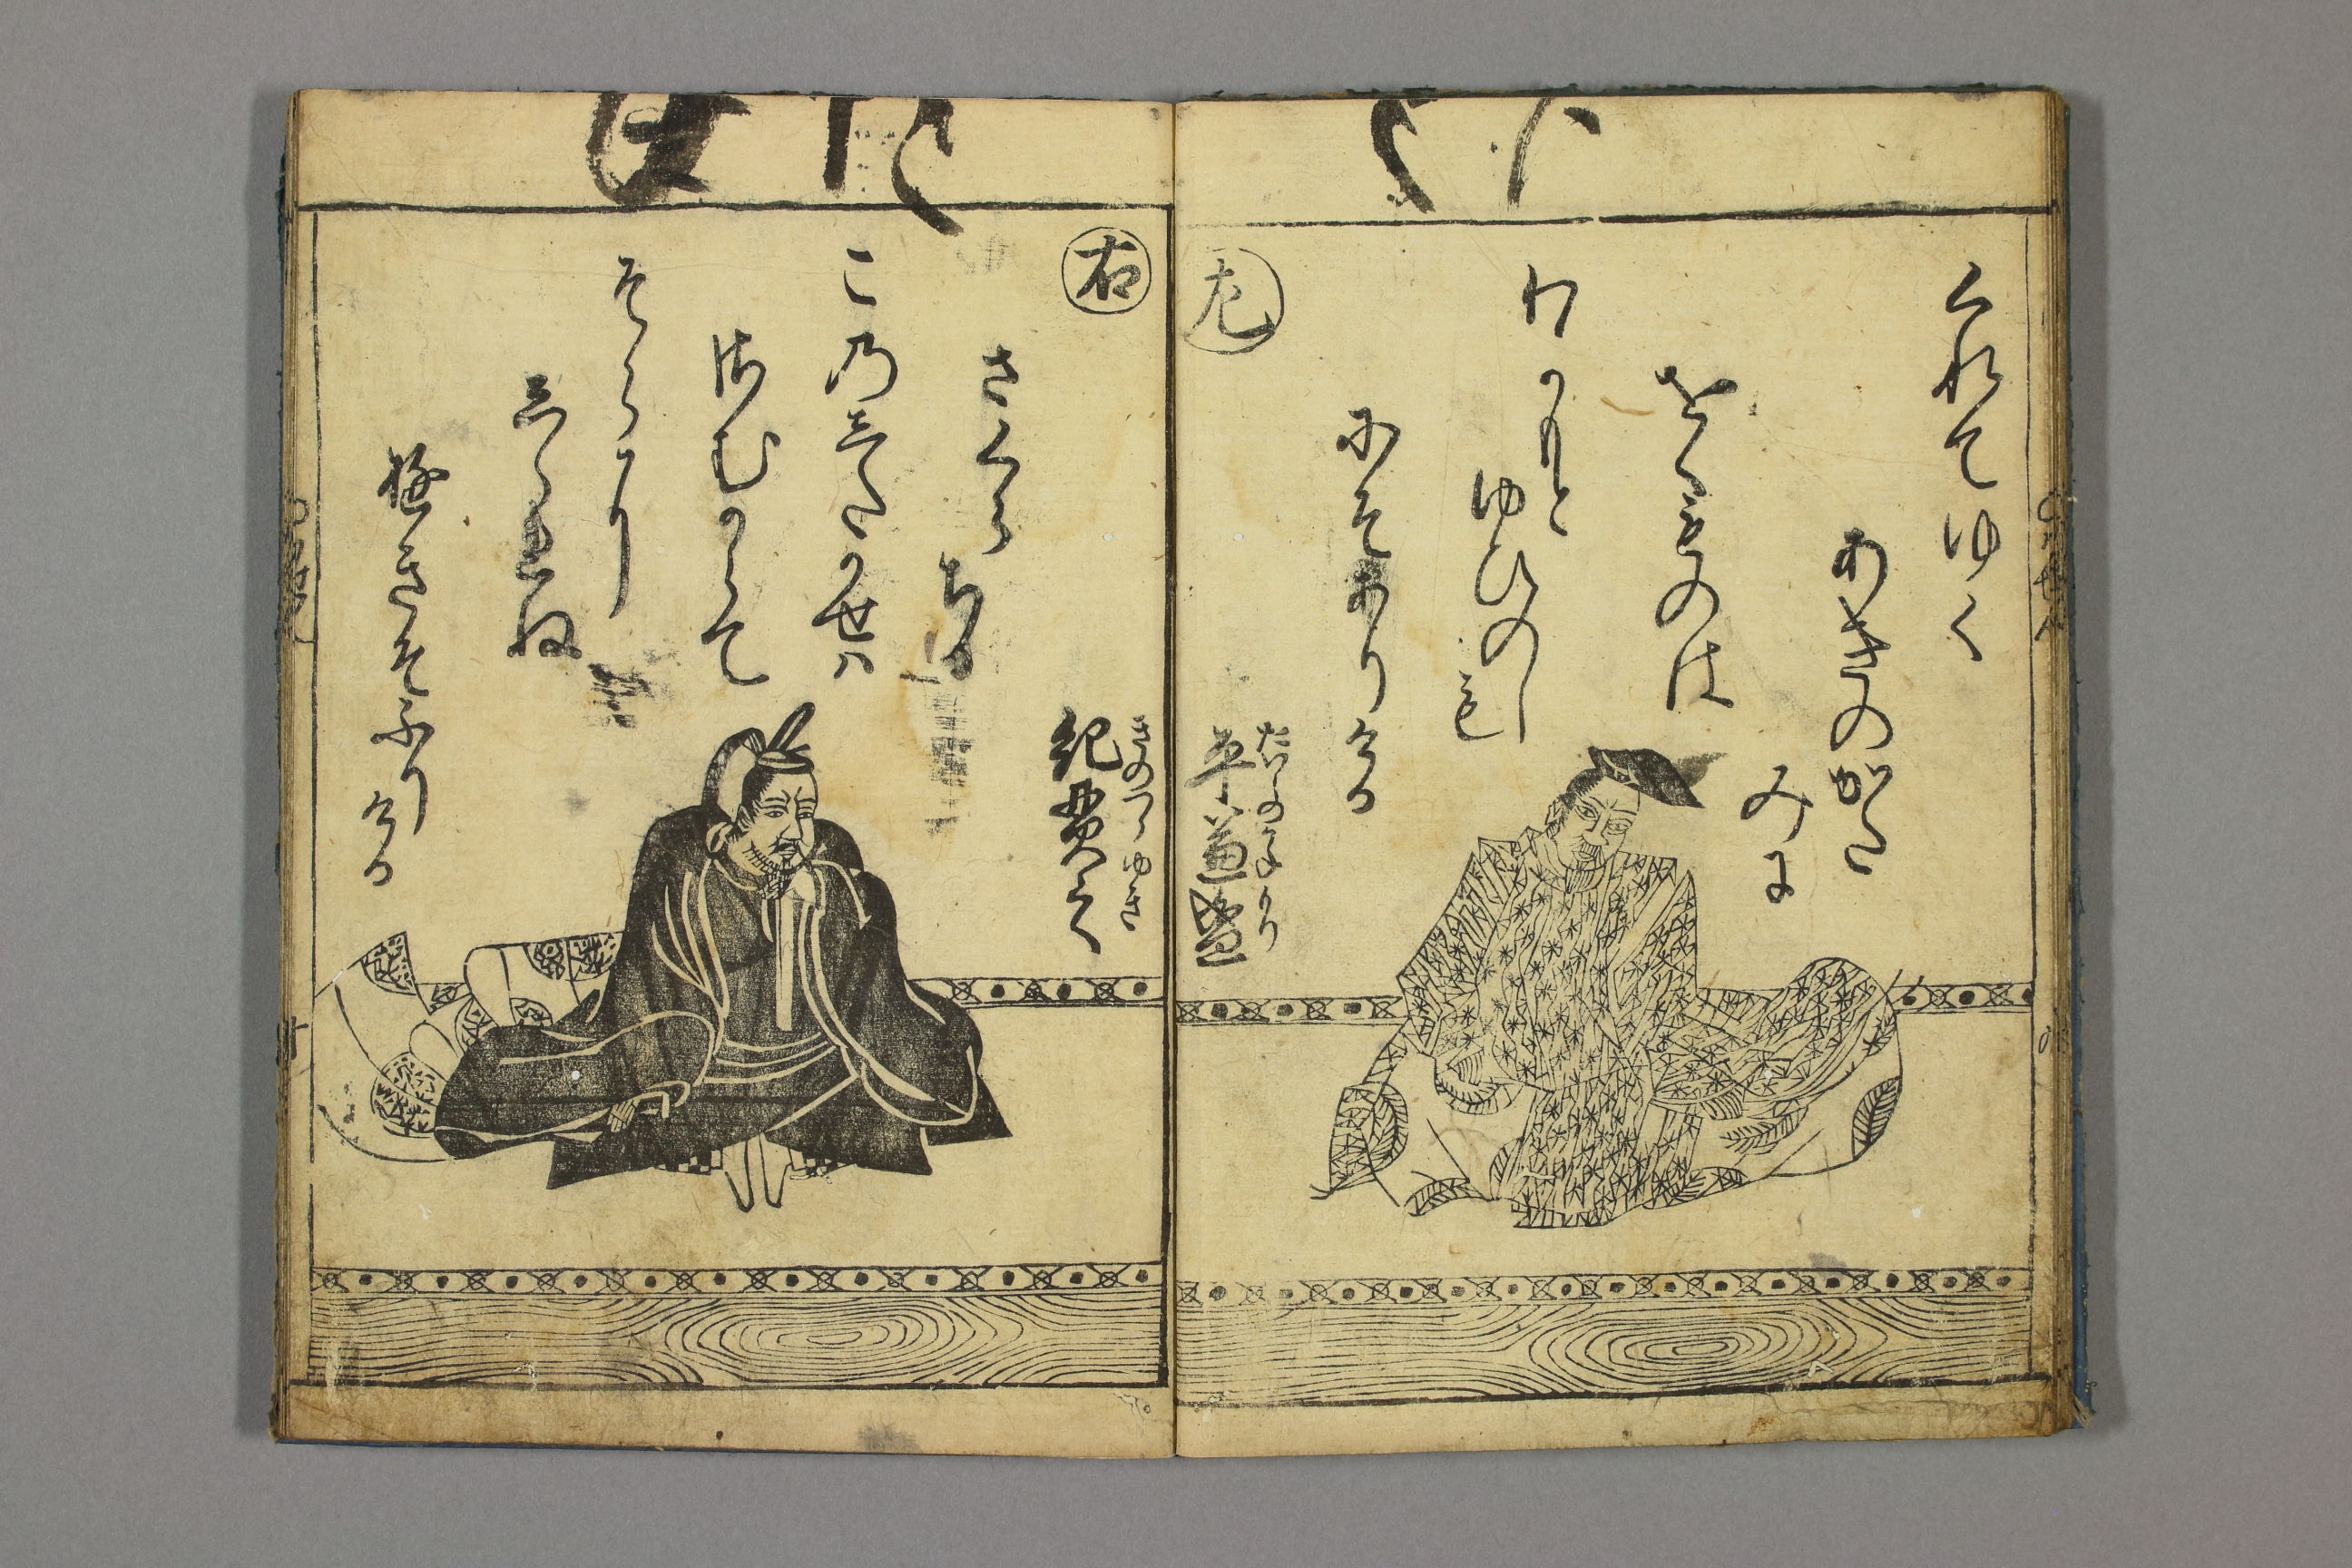 くれてゆく
あきのかた
みに
をくものは
わかもと
ゆひのし
も
にそありける
左
たいらのかねもり
平兼盛
右
きのつらゆき
紀貫之
さくらちる
この志たかせハ
さむからて
そらに
志られぬ
雪そふりける